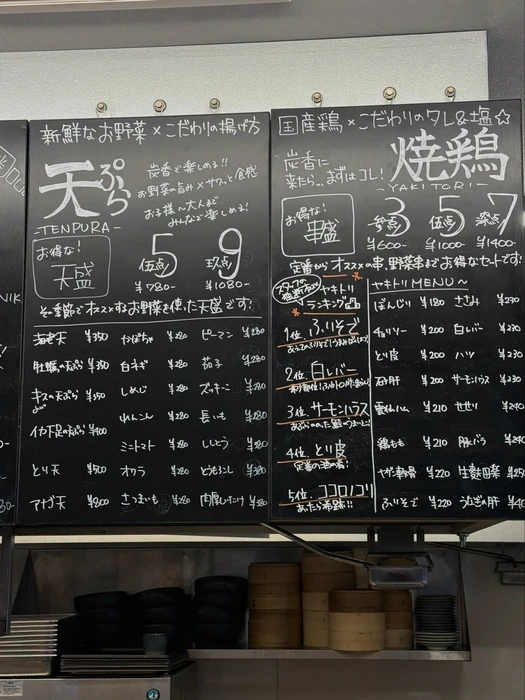 新鮮なお野菜×こだわりの揚げ方
天ぷら
-TENPURA-
炭香で楽しめる!!
お野菜の旨み×サクッと食感
お子様〜大人まで
みんなで楽しめる!
お得な!
天盛
5
伍点
¥780-
9
玖点
¥1080-
その季節でオススメするお野菜を使った天盛です!
海老天 ¥350
牡蠣の天ぷら ¥350
キスの天ぷら ¥350
イカ下足の天ぷら ¥400
とり天 ¥500
アナゴ天 ¥800
かぼちゃ ¥280
白ネギ ¥280
しめじ ¥280
れんこん ¥280
ミニトマト ¥280
オクラ ¥280
さつまいも ¥280
ピーマン ¥280
茄子 ¥280
ズッキーニ ¥280
長いも ¥280
ししとう ¥280
とうもろこし ¥380
肉厚しいたけ ¥380
国産鶏×こだわりのタレ&塩☆
炭香に
来たら...まずはコレ!
焼鶏
-YAKITORI-
お得な!
串盛
3
参点
¥600-
5
伍点
¥1000-
7
¥1400-
定番からオススメの串、野菜串までお得なセットです!
ヤキトリ
ランキング
1位 ふりそで
2位 白レバー
3位 サーモンハラス
4位 とり皮
定番の酒の肴!
5位 ココロノコリ
あったら希少!!
ヤキトリMENU〜
ぼんじり ¥180
チョリソー ¥200
とり皮 ¥200
砂肝 ¥200
¥210
鶏もも ¥210
やげん軟骨 ¥220
ふりそで ¥220
ささみ ¥230
白レバー ¥230
ハツ ¥230
サーモンハラス ¥230
せせり ¥240
豚バラ ¥240
生麩田楽 ¥250
うなぎの肝 ¥440